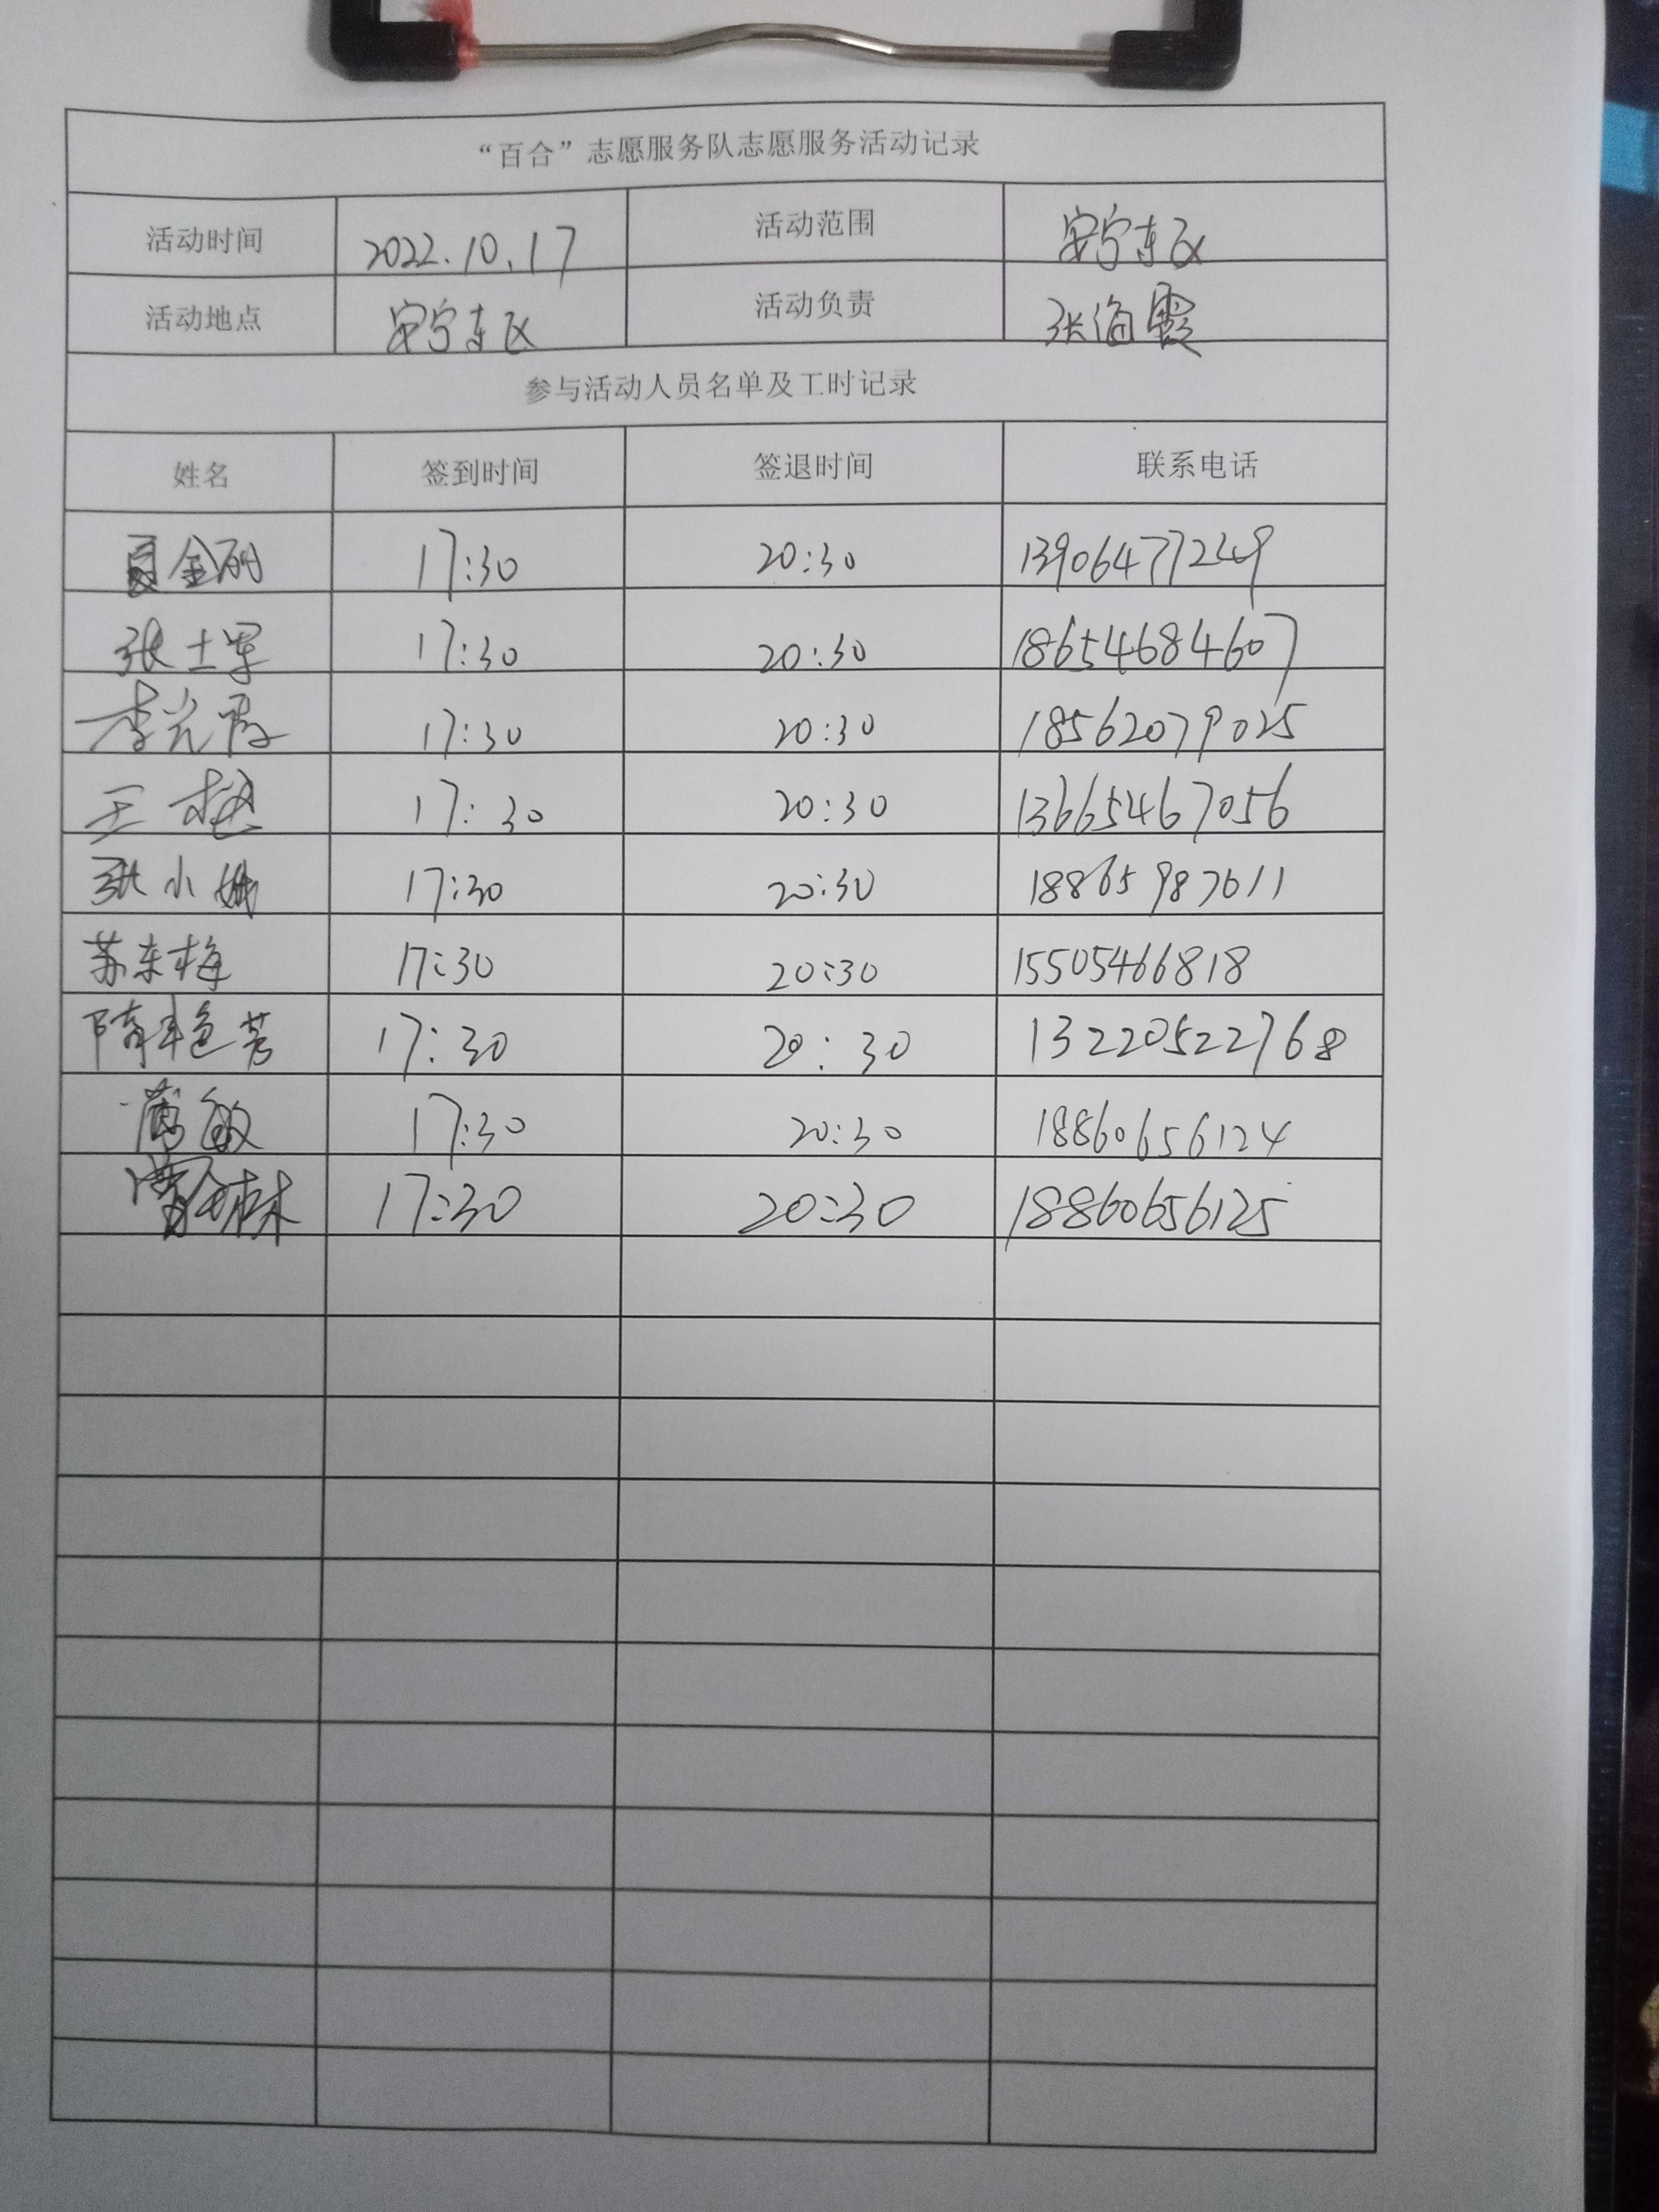 “百合”志愿服务队志愿服务活动记录
活动时间 2022.10.17 活动范围 安宁东区
活动地点 安宁东区 活动负责 张海霞
参与活动人员名单及工时记录
姓名 签到时间 签退时间 联系电话
夏金丽 17:30 20:30 13906477249
张士军 17:30 20:30 18654684607
李光霞 17:30 20:30 18562079025
王 17:30 20:30 13665467056
张小 17:30 20:30 18865987611
苏东梅 17:30 20:30 15505466818
隋艳芳 17:30 20:30 13220522768
敏 17:30 20:30 18860656124
17:30 20:30 18860656125